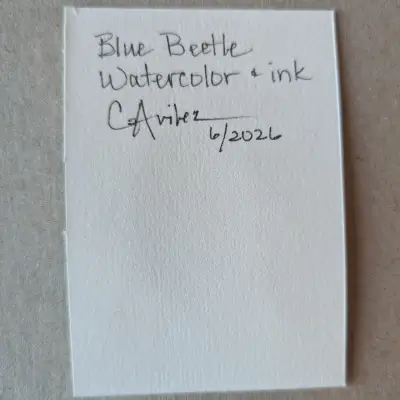 Blue Beetle
Watercolor + ink
C Aviles
6/2026